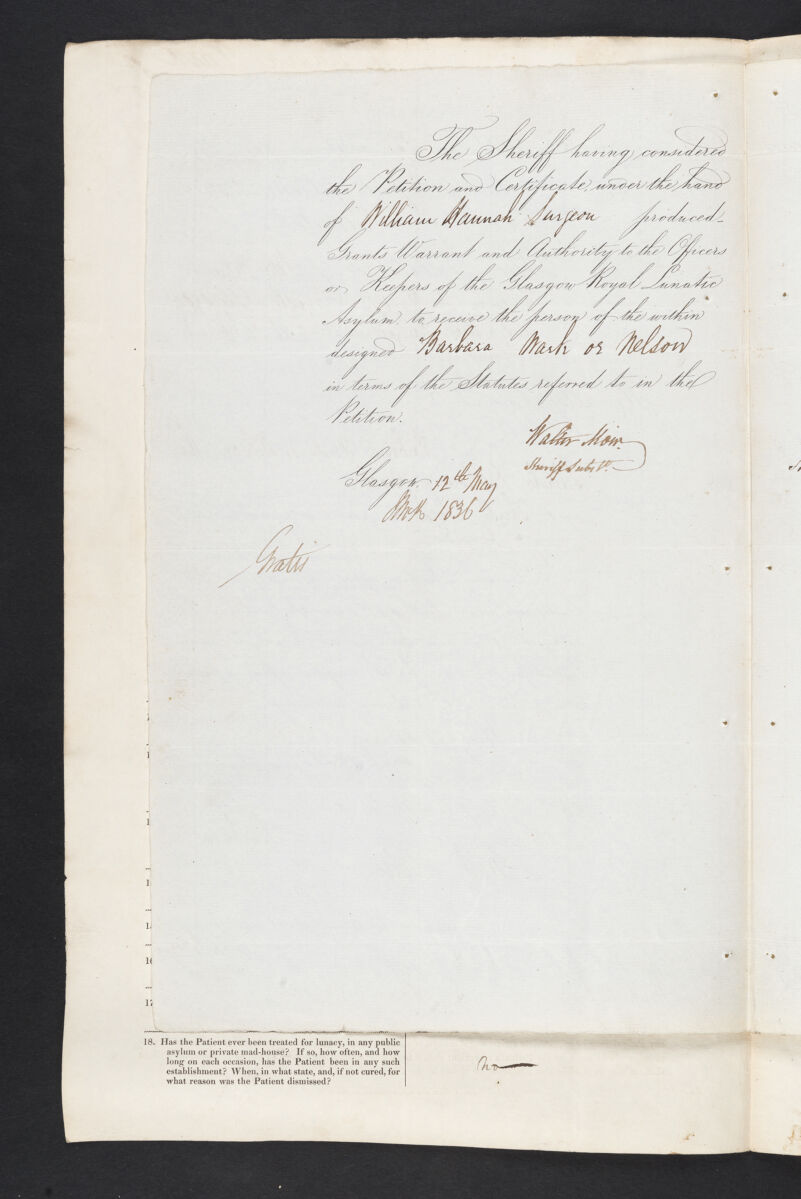 The Sheriff having considered
the Petition and Certificate, under the hand
of William Hannah Surgeon produced
Grants Warrant and Authority to the Officers
or Keepers of the Glasgow Royal Lunatic
Asylum, to receive the person of the within
designed Barbara Mark or Nelson
in terms of the Statutes referred to in the
Petition.
Walter Moir.
Sheriff Subst.
Glasgow 12th May
1836
Gratis
18. Has the Patient ever been treated for lunacy, in any public
asylum or private mad-house? If so, how often, and how
long on each occasion, has the Patient been in any such
establishment? When, in what state, and, if not cured, for
what reason was the Patient dismissed?
no